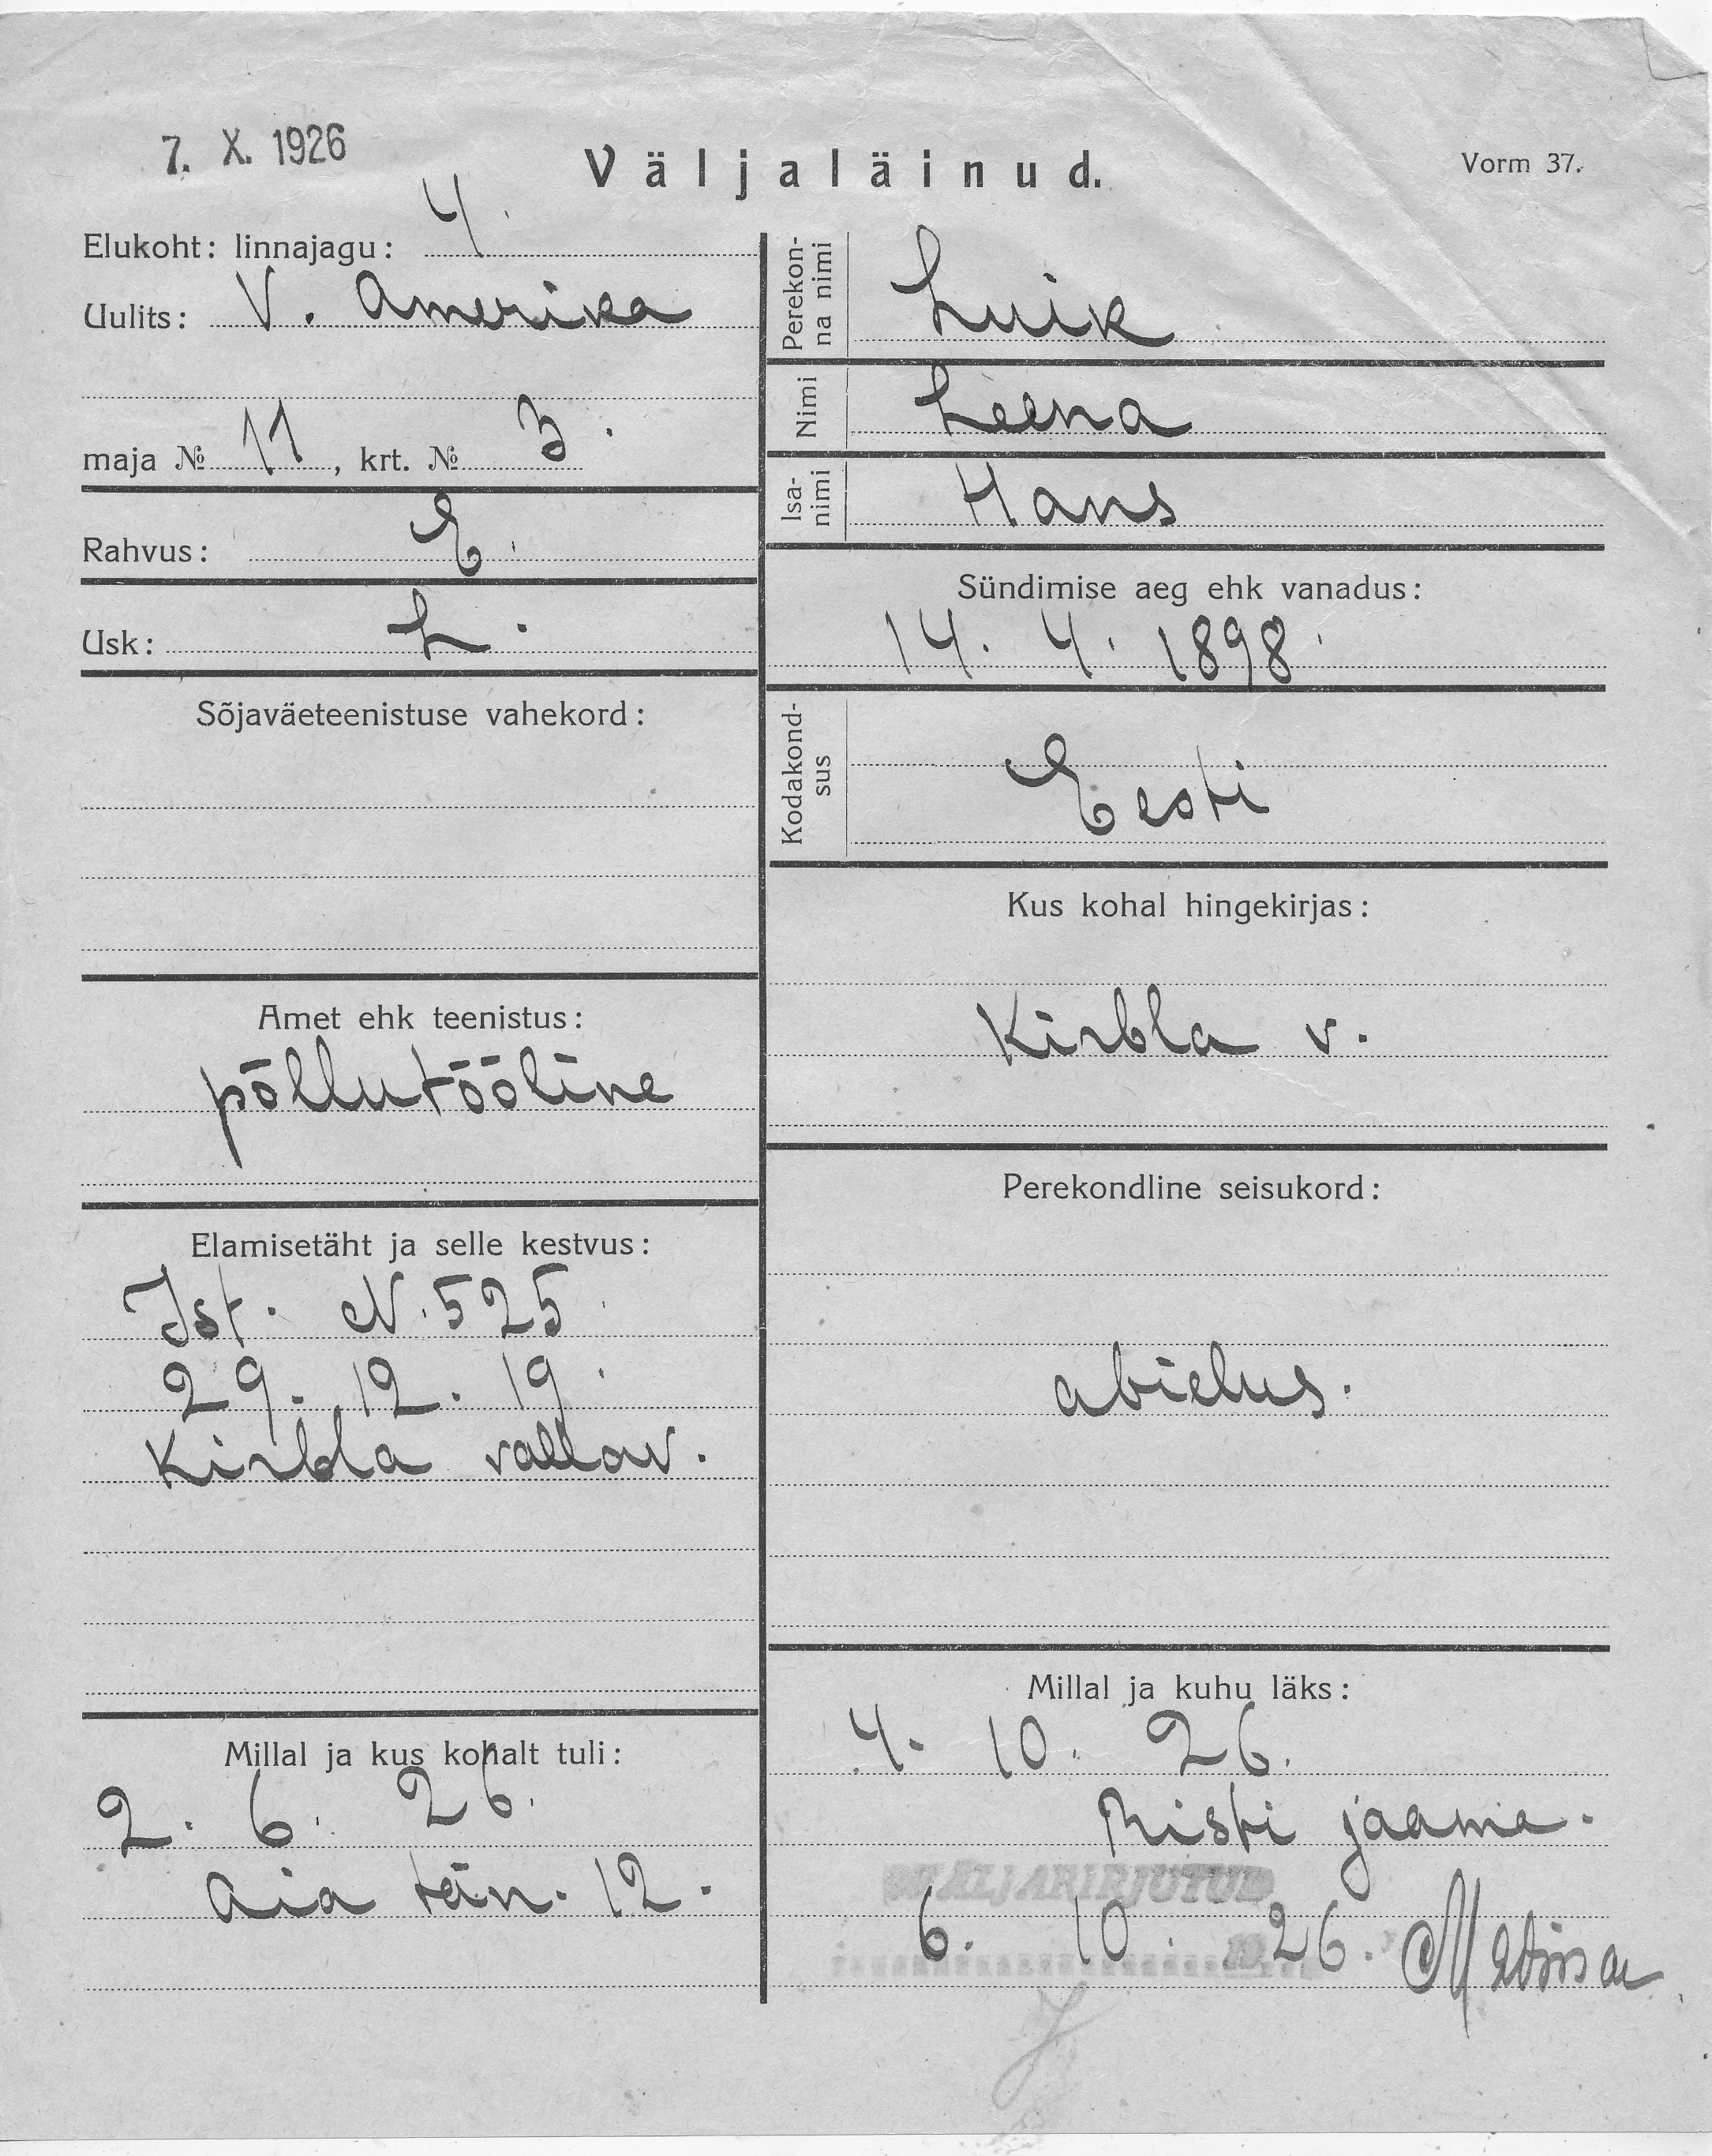 7. X. 1926
Väljaläinud.
Vorm 37.
Elukoht: linnajagu: 4.
Uulits: V. Amerika
maja № 11, krt. № 3.
Rahvus: E.
Usk: L.
Sõjaväeteenistuse vahekord:
Amet ehk teenistus:
põllutööline
Elamisetäht ja selle kestvus:
Ist. N. 525.
29. 12. 19.
Kirbla vallav.
Millal ja kus kohalt tuli:
2. 6. 26.
Aia tän. 12.
Perekon-
na nimi
Luik
Nimi
Leena
Isa-
nimi
Hans
Sündimise aeg ehk vanadus:
14. 4. 1898.
Kodakond-
sus
Eesti
Kus kohal hingekirjas:
Kirbla v.
Perekondline seisukord:
abielus.
Millal ja kuhu läks:
4. 10. 26.
Risti jaama.
VÄLJAKIRJUTUD
6. 10. 1926.